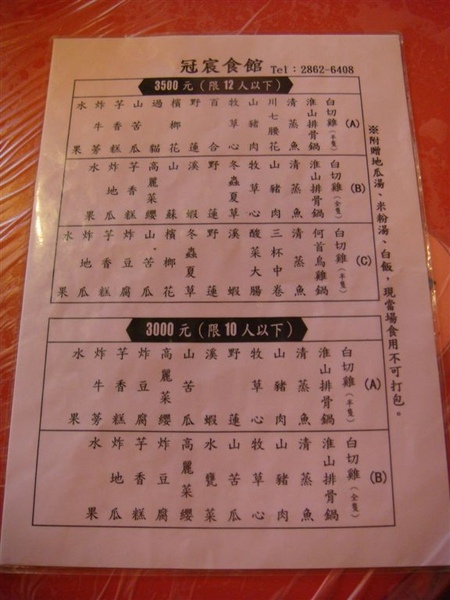 冠宸食館 Tel：2862-6408
3500 元（限 12 人以下）
(A)
白切雞（半隻）
淮山排骨鍋
清蒸魚
川七腰花
山豬肉
牧草心
百合
野蓮
檳榔花
過貓
山苦瓜
芋香糕
炸牛蒡
水果
(B)
白切雞（全隻）
淮山排骨鍋
清蒸魚
山豬肉
牧草心
冬蟲夏草
野蓮
溪蝦
山蘇
高麗菜纓
芋香糕
炸地瓜
水果
(C)
白切雞（半隻）
何首烏雞鍋
清蒸魚
三杯中卷
酸菜大腸
溪蝦
野蓮
冬蟲夏草
檳榔花
山苦瓜
炸豆腐
芋香糕
炸地瓜
水果
3000 元（限 10 人以下）
(A)
白切雞（半隻）
淮山排骨鍋
清蒸魚
山豬肉
牧草心
野蓮
溪蝦
山苦瓜
高麗菜纓
炸豆腐
芋香糕
炸牛蒡
水果
(B)
白切雞（全隻）
淮山排骨鍋
清蒸魚
山豬肉
牧草心
山苦瓜
水甕菜
高麗菜纓
炸豆腐
芋香糕
炸地瓜
水果
※附贈地瓜湯、米粉湯、白飯，現當場食用不可打包。